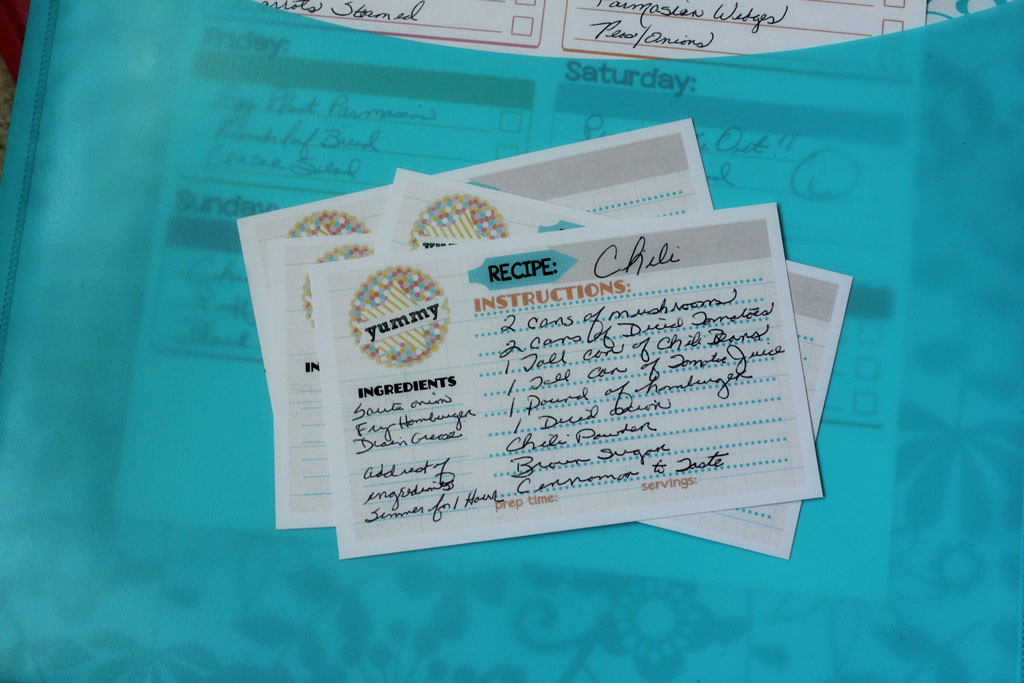 Steamed
Parmasian Wedges
Peas/Onions
Friday:
Saturday:
Egg Plant Parmasian
French Loaf Bread
Ceasar Salad
Out!!
Sunday:
yummy
RECIPE: Chili
INSTRUCTIONS:
2 cans of mushrooms
2 cans of Diced Tomatoes
1 Tall can of Chili Beans
1 Tall can of Tomato Juice
1 Pound of hamburger
1 Diced Onion
Chili Powder
Brown Sugar
Cennamon to Taste
prep time:
servings:
INGREDIENTS
Saute onion
Fry Hamburger
Drain Grease
add rest of
ingredients
Simmer for 1 Hour
IN
IN